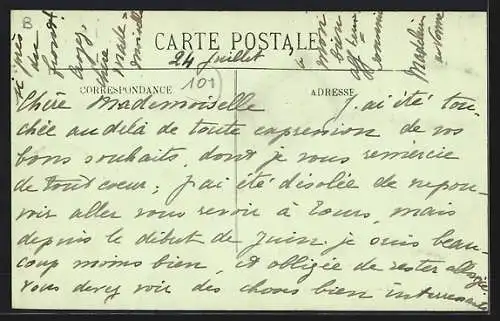 B
CARTE POSTALE
24 juillet
101
CORRESPONDANCE
ADRESSE
Chère Mademoiselle J'ai été tou-
chée au delà de toute expression de vos
bons souhaits, dont je vous remercie
de tout coeur; j'ai été désolée de ne pou-
voir aller vous revoir à Tours, mais
depuis le début de Juin je suis beau-
coup moins bien, et obligée de rester allongée
Vous devez voir des choses bien interressantes
chère
Made
moiselle
mon
bien